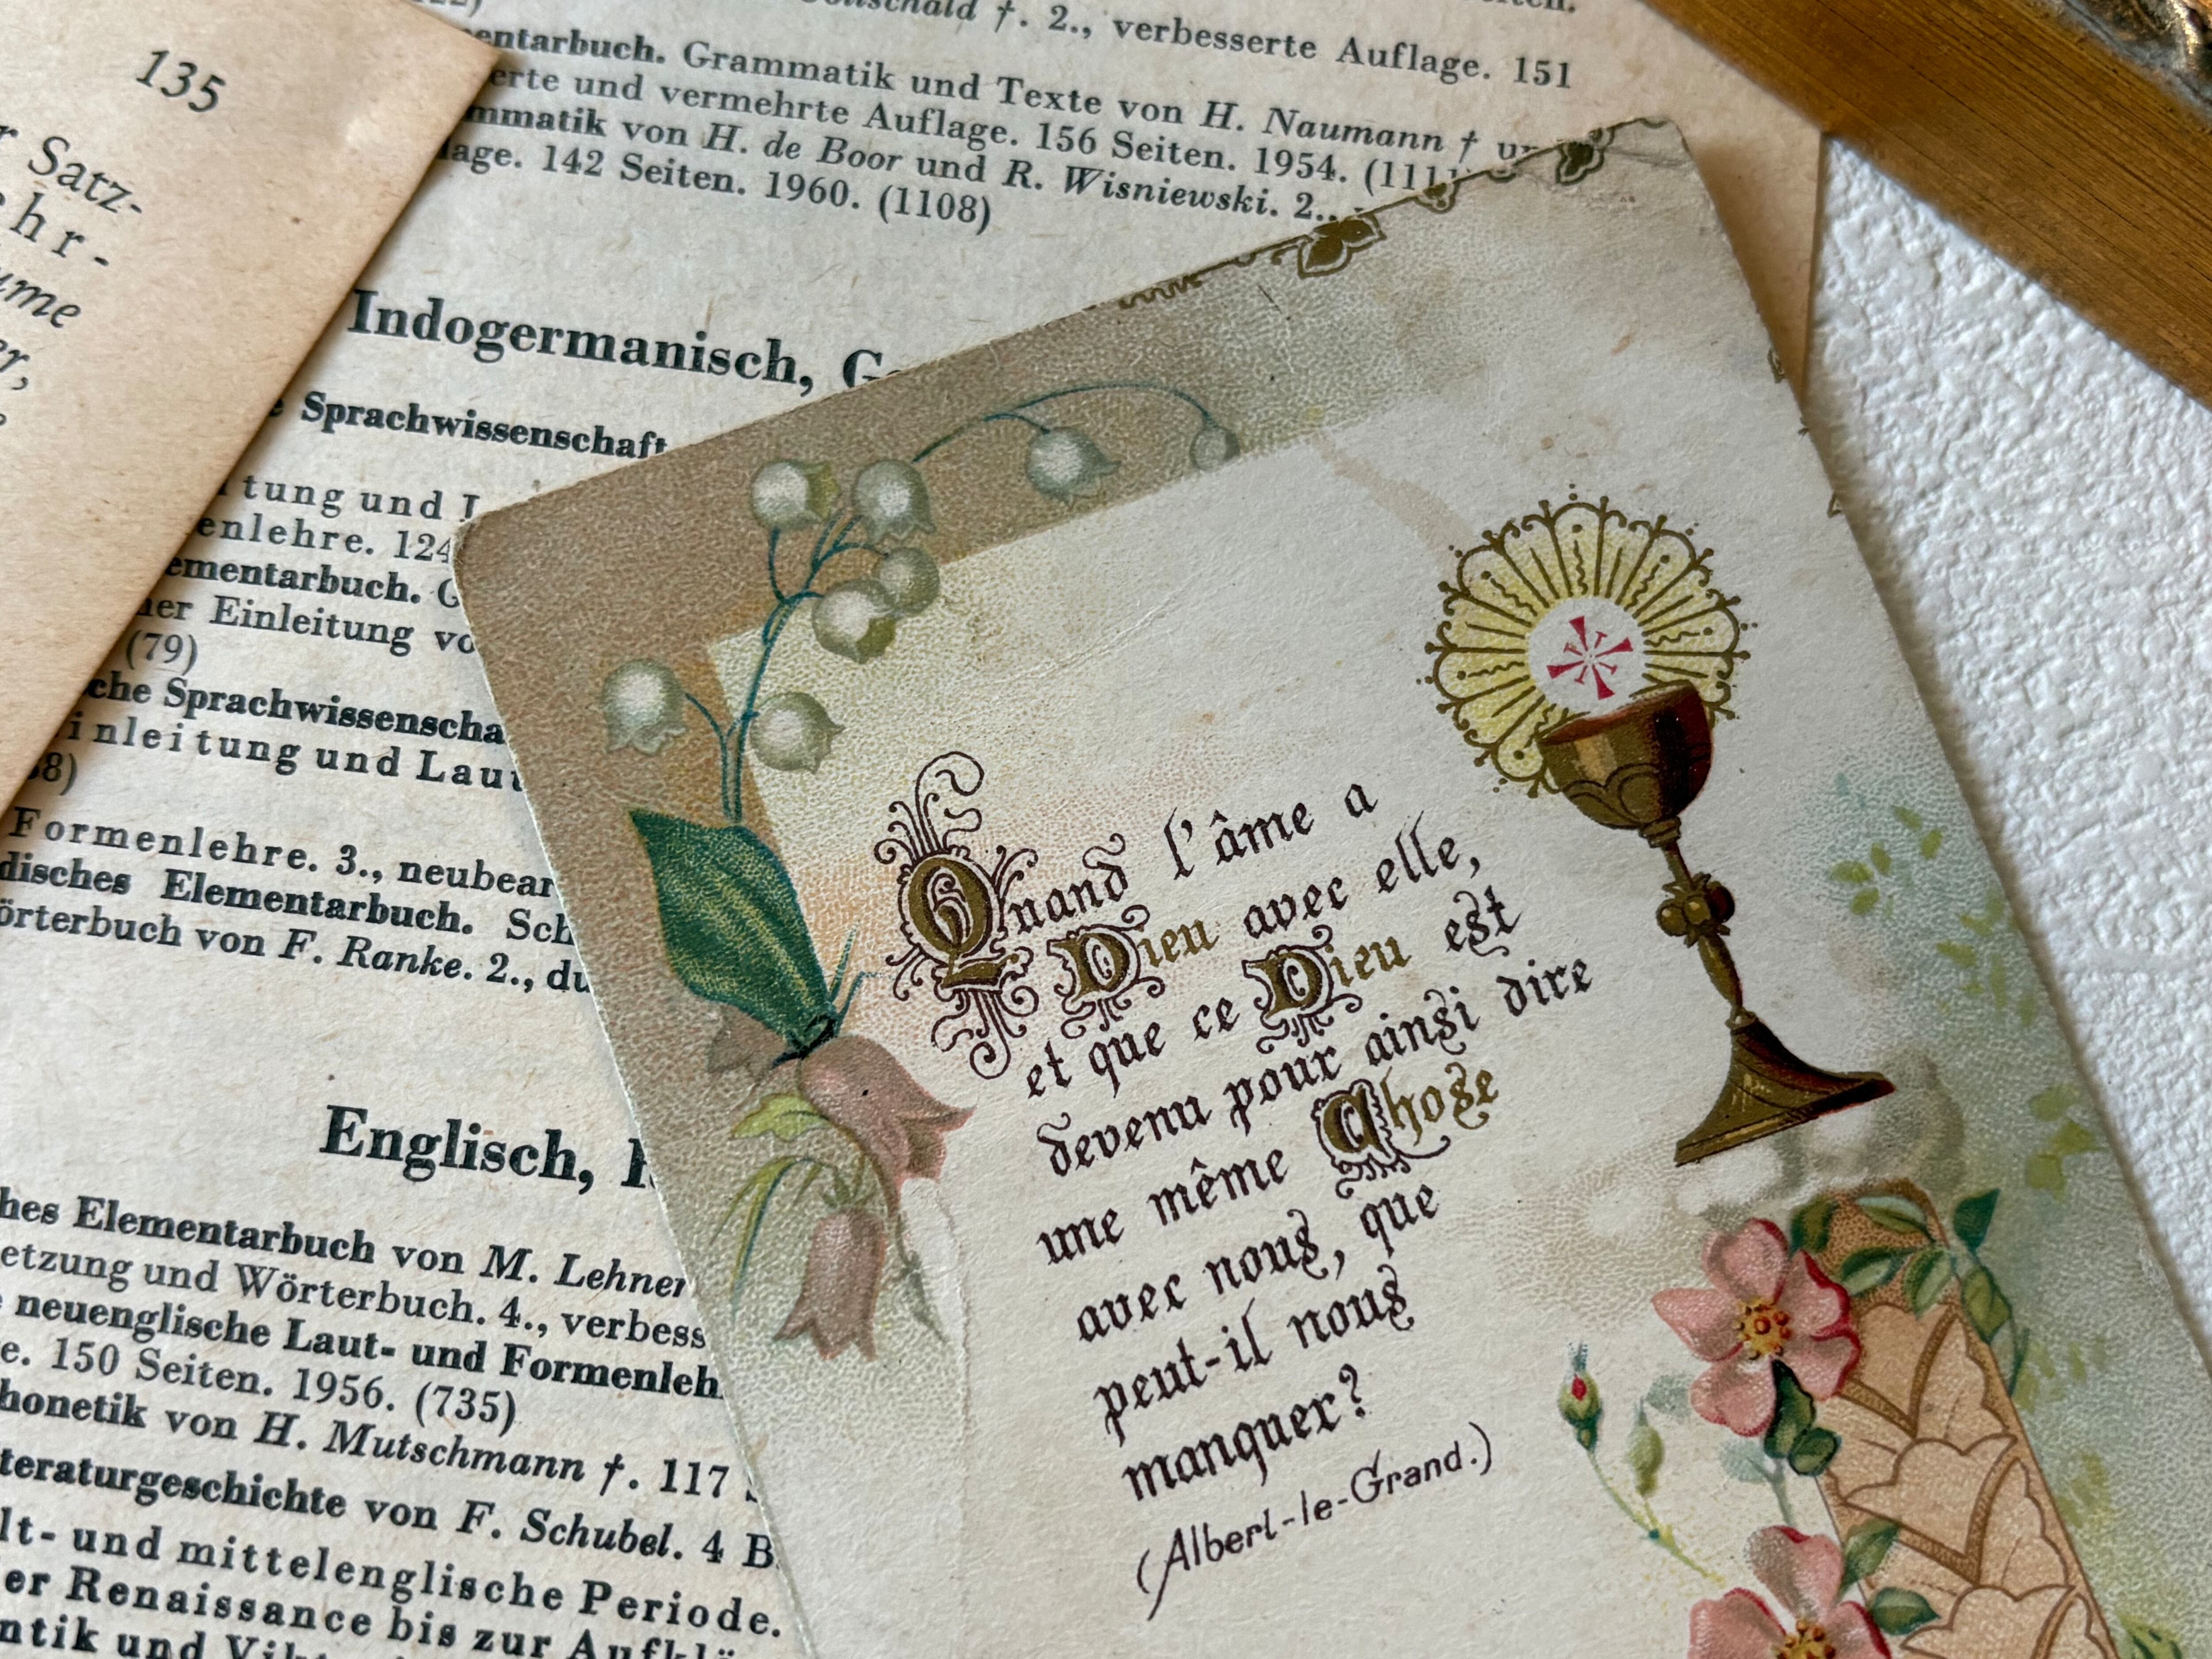 135
Satz-
hr-
ume
er,
†. 2., verbesserte Auflage. 151
entarbuch. Grammatik und Texte von H. Naumann †
erte und vermehrte Auflage. 156 Seiten. 1954.
mmatik von H. de Boor und R. Wisniewski. 2.,
lage. 142 Seiten. 1960. (1108)
Indogermanisch,
Sprachwissenschaft
tung und
enlehre. 124
ementarbuch.
Einleitung
(79)
che Sprachwissenscha
inleitung und Lau
8)
Formenlehre. 3., neubear
disches Elementarbuch. Sch
örterbuch von F. Ranke. 2., du
Englisch,
hes Elementarbuch von M. Lehner
etzung und Wörterbuch. 4., verbess
neuenglische Laut- und Formenleh
e. 150 Seiten. 1956. (735)
honetik von H. Mutschmann †. 117
teraturgeschichte von F. Schubel. 4 B
lt- und mittelenglische Periode.
er Renaissance bis zur Aufklä
ntik und
Quand l'âme a
Dieu avec elle,
et que ce Dieu est
devenu pour ainsi dire
une même Chose
avec nous, que
peut-il nous
manquer?
(Albert-le-Grand.)